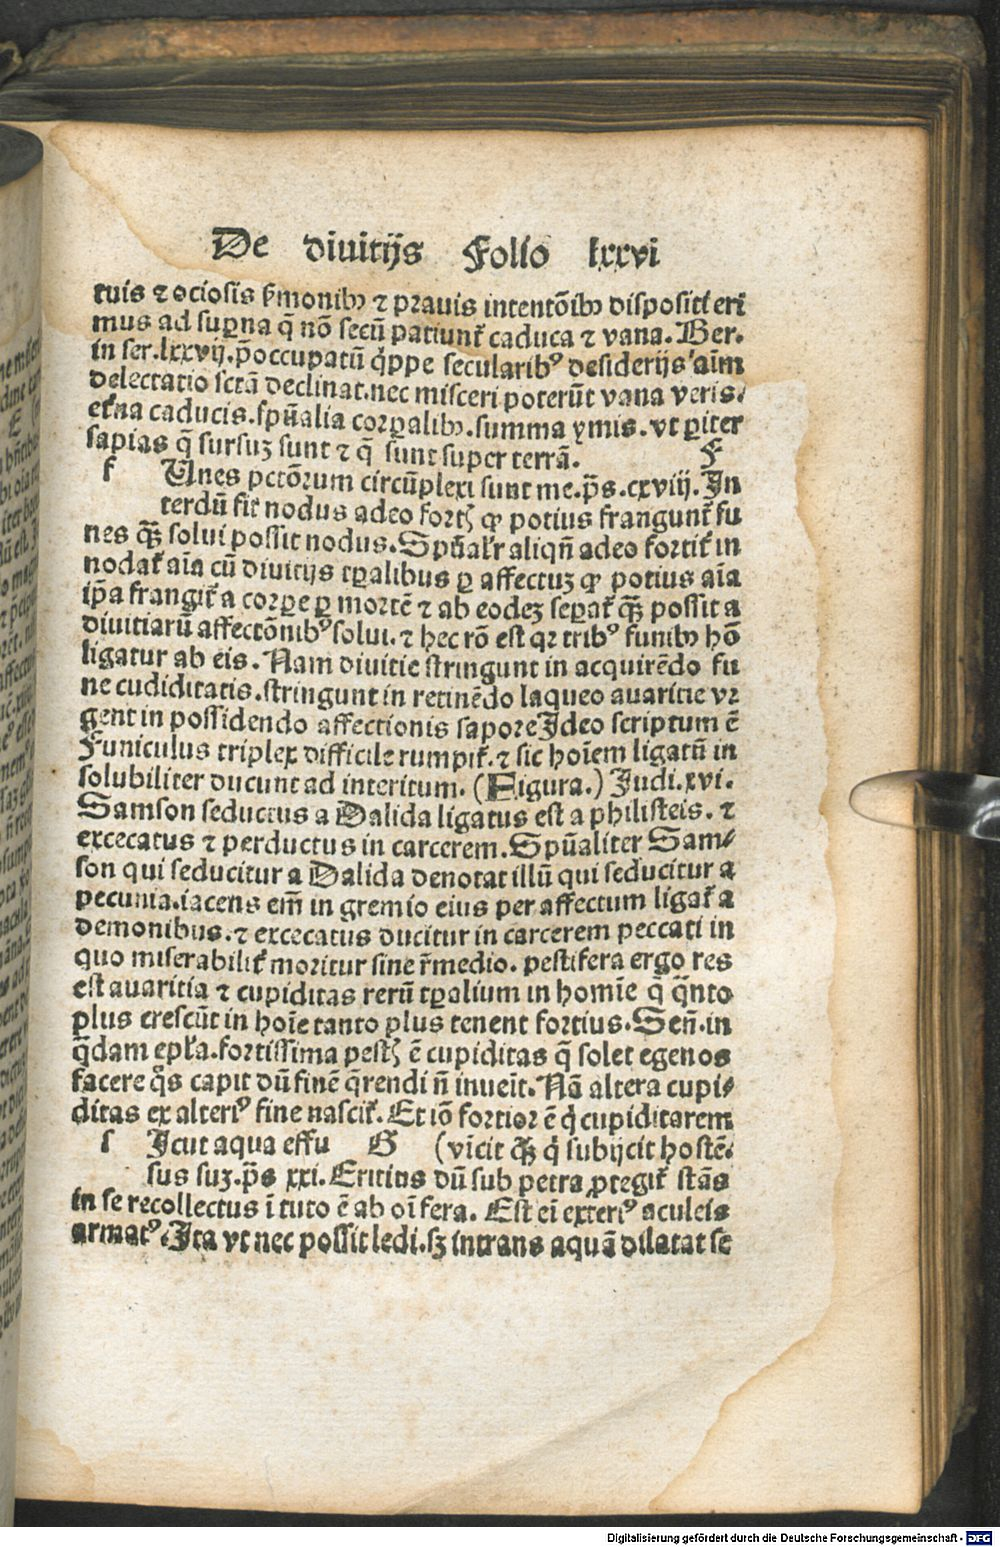 De diuitijs Folio lxxvi
tuis ⁊ ociosis ẜmonibꝫ ⁊ prauis intentõibꝫ dispositi eri
mus ad suꝑna q̃ nõ secũ patiunť caduca ⁊ vana. Ber.
in ser.lxxvij.p̃occupatũ q̇ppe secularibꝰ desiderijs aĩm
delectatio sctã declinat.nec misceri poterũt vana veris.
eťna caducis.sp̃ualia corꝑalibꝫ.summa ymis.vt ꝑiter
sapias q̃ sursuꝫ sunt ⁊ q̃ sunt super terrã. F
f Unes pctõrum circũplexi sunt me.p̃s.cxviij.In
terdũ fit nodus adeo fortꝭ ꝙ potius frangunť fu
nes qꝫ̃ solui possit nodus.Sp̃ualr̃ aliqñ adeo fortiť in
nodať aĩa cũ diuitijs tꝑalibus ꝑ affectuꝫ ꝙ potius aĩa
ip̃a frangiť a corꝑe ꝑ mortẽ ⁊ ab eodeꝫ seꝑať qꝫ̃ possit a
diuitiarũ affectõnibꝰ solui.⁊ hec rõ est qꝛ tribꝰ funibꝫ hõ
ligatur ab eis. Nam diuitie stringunt in acquirẽdo fu
ne cudiditatis.stringunt in retinẽdo laqueo auaritie vr
gent in possidendo affectionis sapore Ideo scriptum ẽ
Funiculus triplex difficile rumpiť.⁊ sic hoĩem ligatũ in
solubiliter ducunt ad interitum. (Figura.) Judi.xvi.
Samson seductus a Dalida ligatus est a philisteis. ⁊
excecatus ⁊ perductus in carcerem.Sp̃ualiter Sam⸗
son qui seducitur a Dalida denotat illũ qui seducitur a
pecunia.iacens em̃ in gremio eius per affectum ligať a
demonibus.⁊ excecatus ducitur in carcerem peccati in
quo miserabiliť moritur sine r̃medio. pestifera ergo res
est auaritia ⁊ cupiditas rerũ tꝑalium in homĩe q̃ q̃nto
plus crescũt in hoĩe tanto plus tenent fortius.Señ.in
q̃dam epl̃a.fortissima pestꝭ ẽ cupiditas q̃ solet egenos
facere q̇s capit dũ finẽ q̃rendi ñ inueĩt. Nã altera cupi⸗
ditas ex alteriꝰ fine nasciť. Et iõ fortior ẽ q̇ cupiditatem
s Icut aqua effu G (vĩcit qꝫ̃ q̇ subijcit hostẽ.
sus suꝫ.p̃s xxi.Eritius dũ sub petra ꝓtegiť stãs
in se recollectus ĩ tuto ẽ ab oĩ fera. Est eĩ exteriꝰ aculeis
armatꝰ.Ita vt nec possit ledi.sꝫ intrans aquã dilatat se
Digitalisierung gefördert durch die Deutsche Forschungsgemeinschaft - DFG